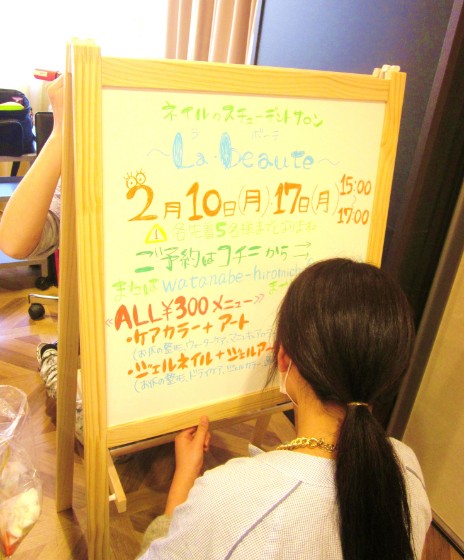 ネイルのスチューデントサロン
ラ ボーテ
~La・beaute~
2月10日(月)17日(月) 15:00~17:00
各先着5名様までとなります
ご予約はコチラから→
または watanabe-hiromi
《ALL¥300メニュー》
・ケアカラー+アート
(お爪の整形、ウォーターケア、マニキュア
・ジェルネイル+ジェルアー
(お爪の整形、ドライケア、ジェルカラー